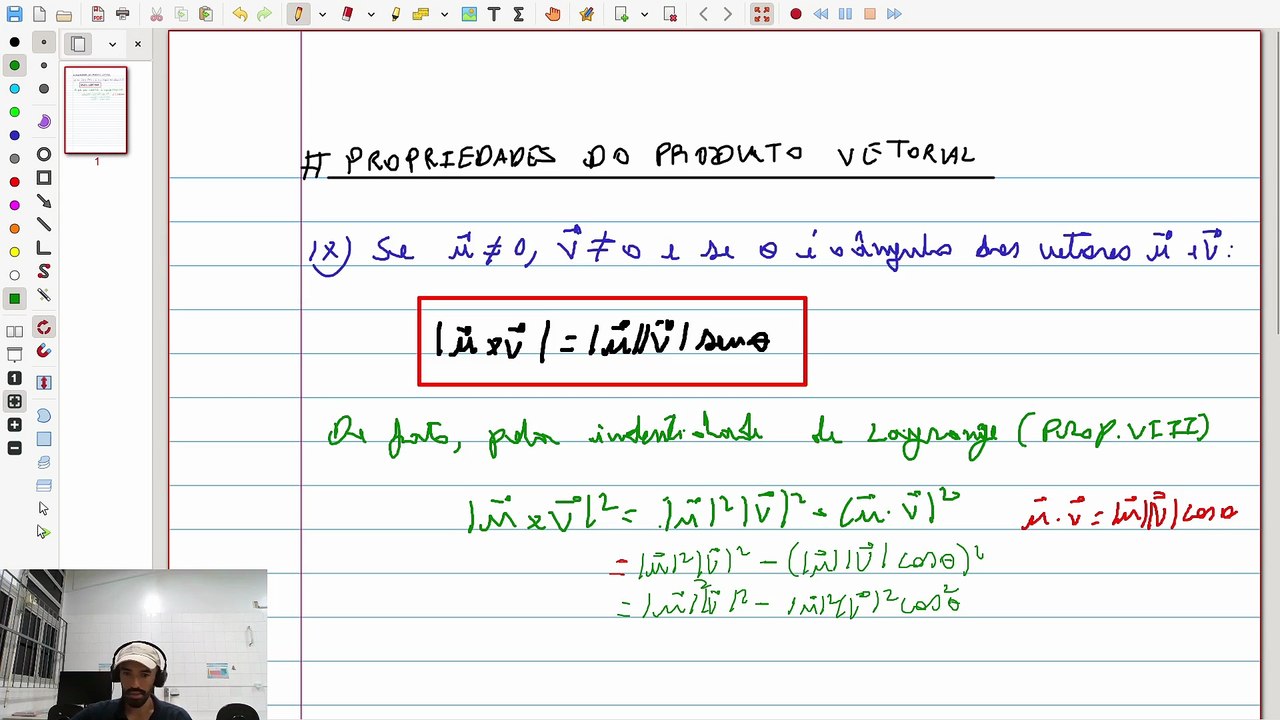 # PROPRIEDADES DO PRODUTO VETORIAL
IX) Se u⃗ ≠ 0, v⃗ ≠ 0 e se θ é o ângulo dos vetores u⃗ e v⃗:
|u⃗ x v⃗| = |u⃗||v⃗| senθ
De fato, pela indentidade de Lagrange (PROP. VIII)
|u⃗ x v⃗|² = |u⃗|²|v⃗|² - (u⃗ · v⃗)² u⃗ · v⃗ = |u⃗||v⃗| cosθ
= |u⃗|²|v⃗|² - (|u⃗||v⃗| cosθ)²
= |u⃗|²|v⃗|² - |u⃗|²|v⃗|² cos²θ
1